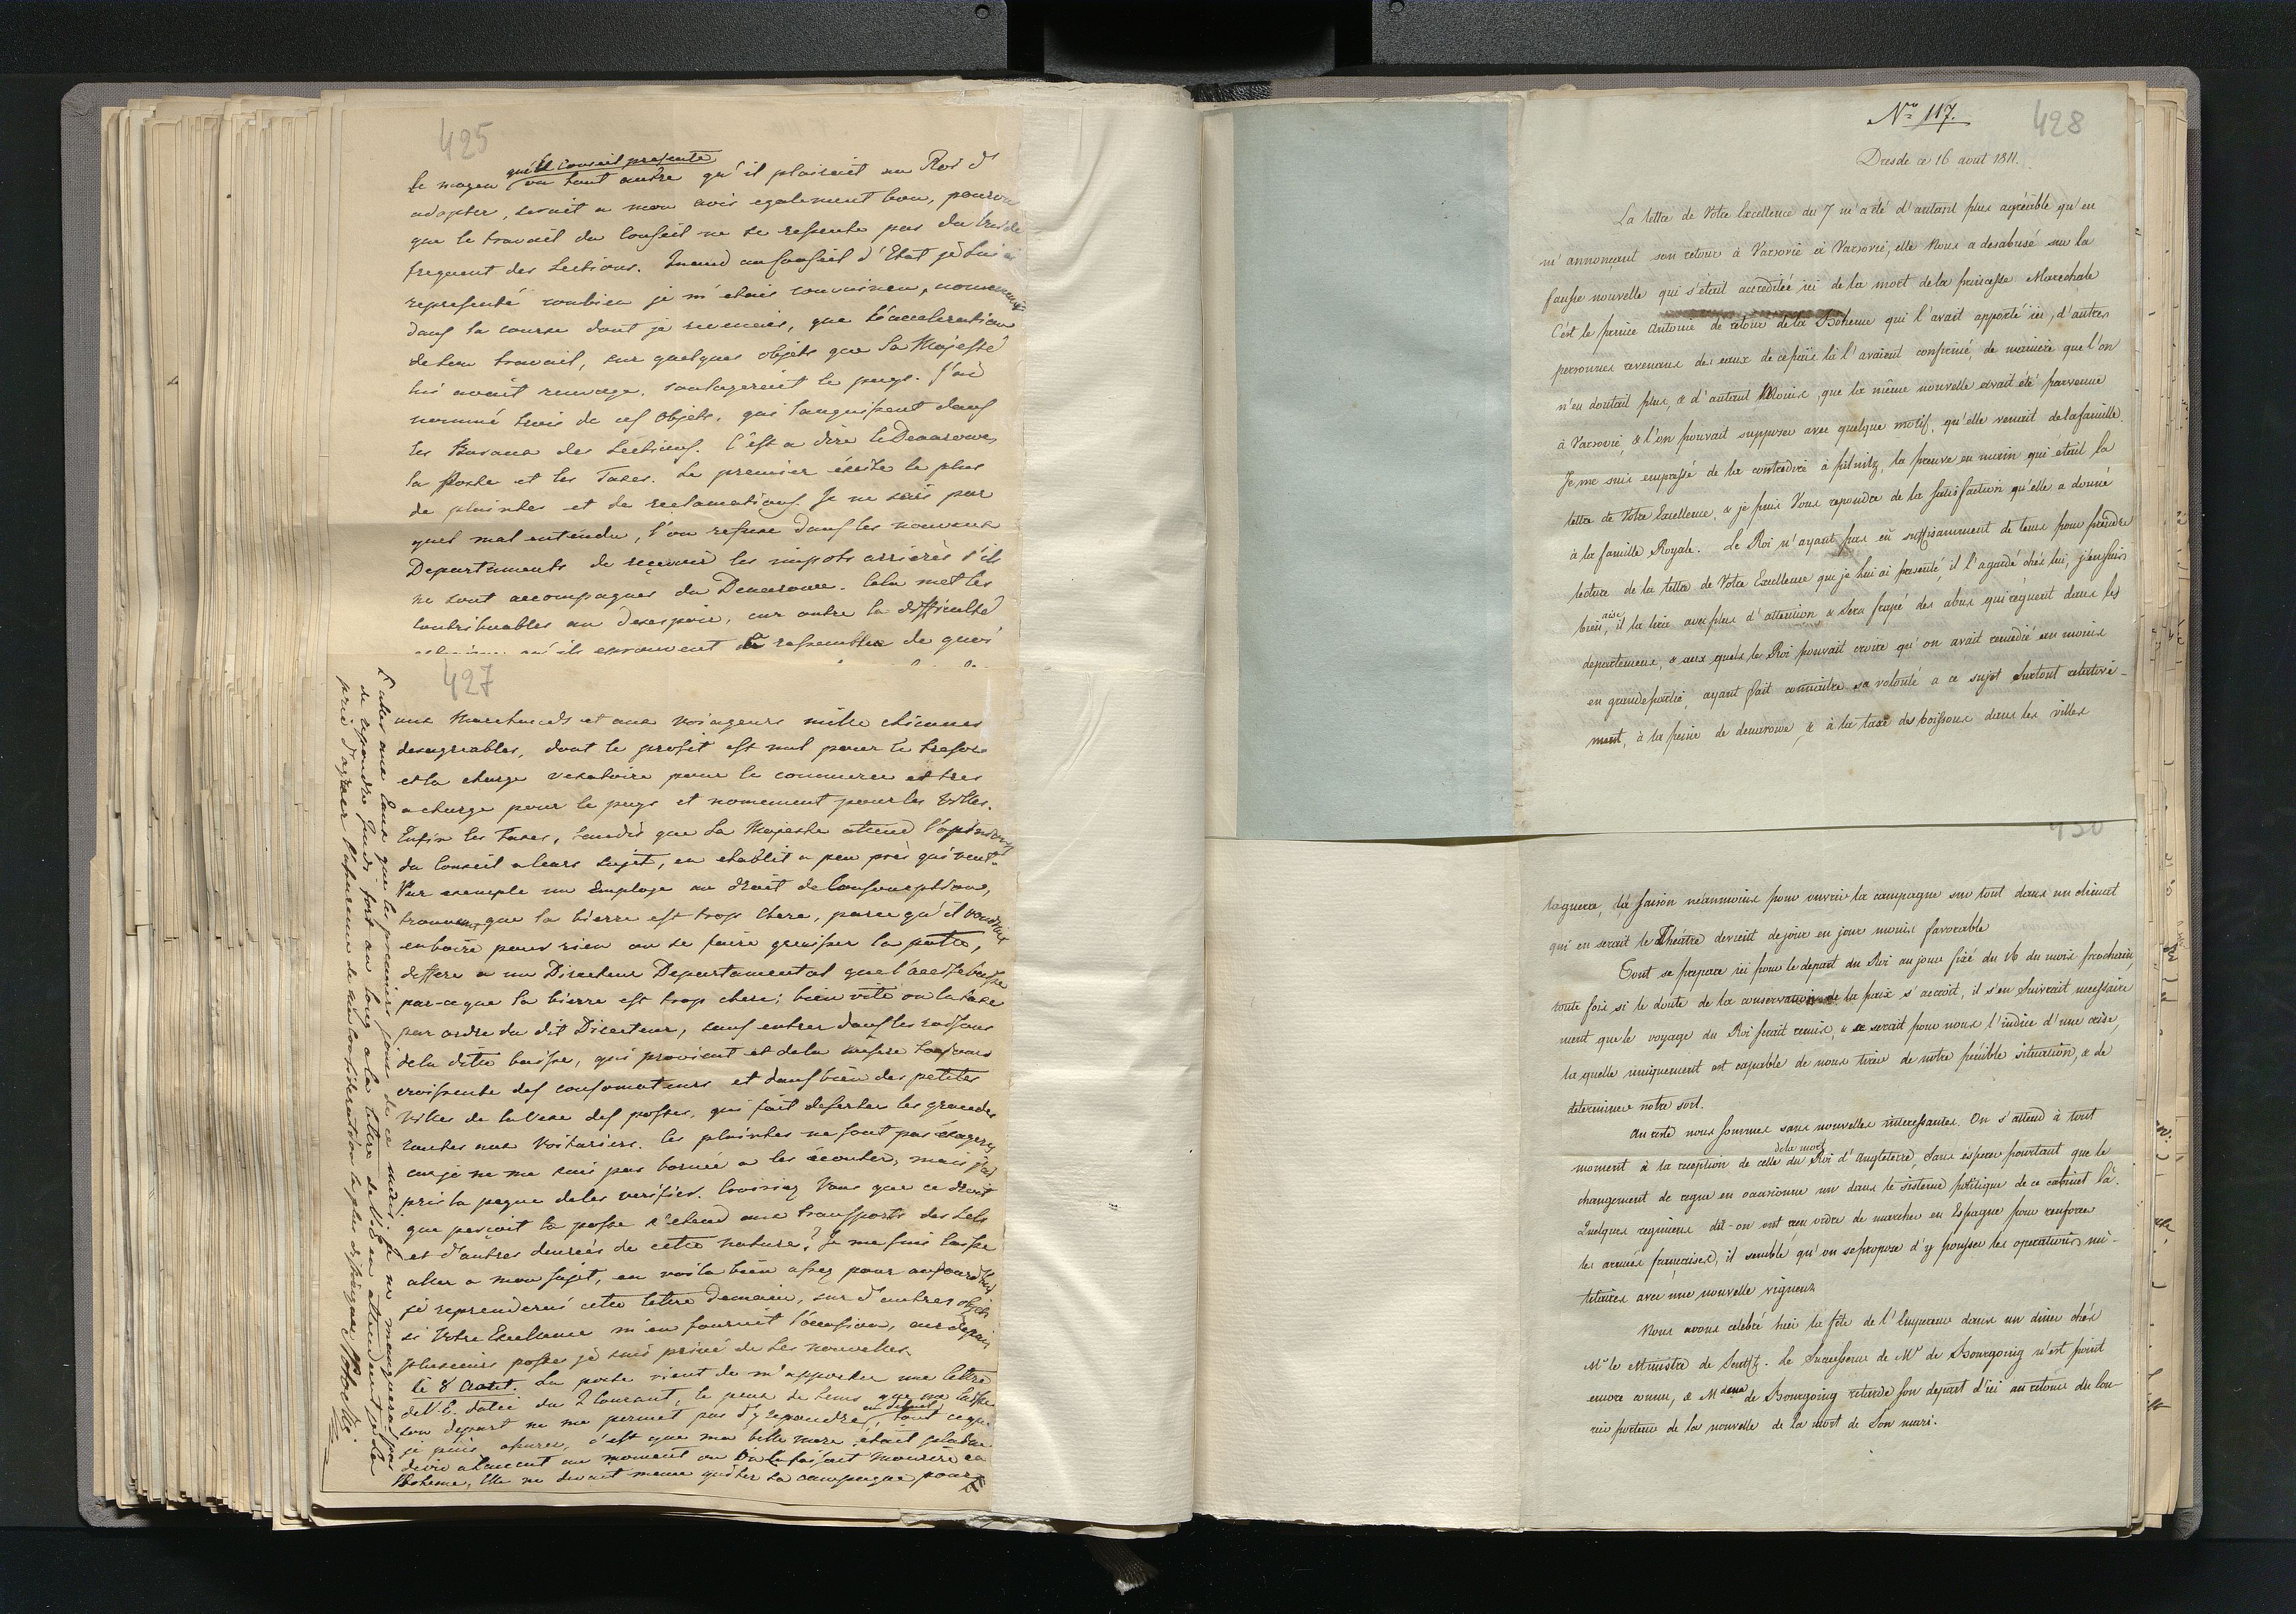 425
qu'il Conseil presente
le moyen ou tout autre qu'il plairait au Roi d'
adopter, serait a mon avis egalement bon, pourvu
que le travail du Conseil ne se ressente pas du
frequent des Sections. Quand au Conseil d'Etat je lui ai
representé combien je m'etais convaincu, nommement
dans la course dont je revenais, que l'acceleration
de son travail, sur quelques objets que Sa Majesté
lui avait renvoyé, soulagerait le pays. J'ai
nommé trois de ces Objets, qui languissent dans
les Bureaux des Sections. C'est a dire le Denarowe,
la Poste et les Taxes. Le premier éxcite le plus
de plaintes et de reclamations. Je ne sais par
quel mal entendu, l'on refuse dans les nouveaux
Departements de recevoir les impots arrierés s'ils
ne sont accompagnés du Denarowe. Cela met les
Contribuables au desespoir, car outre la difficulté
qu'ils eprouvent de rassembler de quoi
427
aux Marchands et aux voiageurs mille chicanes
desagreables, dont le profit est nul pour le tresor
et la charge vexatoire pour le commerce est tres
a charge pour le pays et nomement pour les Villes.
Enfin les Taxes, tandis que Sa Majesté attend l'opinion
du Conseil a leurs sujet, en etablit a peu près qui veut.
Par exemple un Employe au droit de Consomption,
trouvant que la bierre est trop chere, parce qu'il voudrait
en boire pour rien ou se faire graisser la patte,
differe a un Directeur Departamental que l'accise baisse
par-ce que la bierre est trop chere; bien vite on la taxe
par ordre du dit Directeur, sans entrer dans les raisons
de la dite baisse, qui provient et de la misere toujours
croissente des consomateurs et dans bien des petites
Villes de la taxe des postes, qui fait deserter les grandes
routes aux Voituriers. Ces plaintes ne sont pas éxagerés
car je ne me suis pas bornée a les écouter, mais j'ai
pris la peyne de les verifier. Croiriez Vous que ce droit
que perçoit la poste s'etend aux transports des Sels
et d'autres denrées de cette nature? Je me suis laissé
aller a mon sujet, en voila bien assez pour aujourd'hui
je reprenderai cette lettre demain, sur d'autres objets
si Votre Excellence m'en fournit l'occasion, car depuis
plusieurs postes je suis privé de Ses nouvelles.
le 8 Aout. La poste vient de m'apporter une lettre
de V. E. datée du 2 Courant, le peu de tems que me laisse
son depart ne me permet pas d'y repondre en detail, tout ce que
je puis assurer, c'est que ma belle mere etait
au moment ou on la faisait mourir en
Boheme, Elle ne devait meme quitter la campagne pour
aller aux Eaux que les premiers jours de ce mois. Je ne manquerai pas
de repondre Jeudi fort au long a la lettre de V. E. en attendant je La
prie d'agreer l'assurence de ma consideration la plus distinguée
Potocki
N° 117.
428
Dresde ce 16 aout 1811.
La lettre de Votre Excellence du 7 m'a été d'autant plus agréable qu'en
m'annonçant son retour à Varsovie à Varsovie, elle Nous a desabusé sur la
fausse nouvelle qui s'était accreditée ici de la mort de la princesse Marechale
C'est le prince Antoine de retour de la Boheme qui l'avait apporté ici, d'autres
personnes revenans des eaux de ce païs là l'avaient confirmé, de maniere que l'on
n'en doutait plus, & d'autant Moins, que la même nouvelle avait été parvenue
à Varsovie, & l'on pouvait supposer avec quelque motif, qu'elle venait de la famille.
Je me suis empressé de la contredire à pilnitz, la preuve en main qui etait la
lettre de Votre Excellence, & je puis Vous repondre de la satisfaction qu'elle a donné
à la famille Royale. Le Roi n'ayant pas eu suffisamment de tems pour prendre
lecture de la lettre de Votre Excellence que je lui ai presenté, il l'a gardé chés lui, j'en suis
bien aise, il la lira avec plus d'attention & sera frapé des abus qui règnent dans les
departemens, & aux quels le Roi pouvait croire qu'on avait remedié au moins
en grande partie, ayant fait connaitre sa volonté a ce sujet surtout relative-
ment, à la peine de denarowe, & à la taxe des boissons dans les villes
430
la guerre, la saison néanmoins pour ouvrir la campagne sur tout dans un climat
qui en serait le Théatre devient de jour en jour moins favorable
Tout se prepare ici pour le depart du Roi au jour fixé du 16 du mois prochain,
toute fois si le doute de la conservation de la paix s'accroit, il s'en suivrait necessaire
ment que le voyage du Roi serait remis, & ce serait pour nous l'indice d'une crise,
la quelle uniquement est capable de nous tirer de notre penible situation, & de
determiner notre sort.
Au reste nous sommes sans nouvelles interessantes. On s'attend à tout
de la mort
moment à la reception de celle du Roi d'Angleterre, sans éspérer pourtant que le
changement de regne en occasionne un dans le sisteme politique de ce cabinet là.
Quelques regimens dit-on ont reçu ordre de marcher en Espagne pour renforcer
les armées françaises, il semble qu'on se propose d'y pousser les operations mi-
litaires avec une nouvelle vigueur
Nous avons celebré hier la fête de l'Empereur dans un diner chés
Mr le Ministre de Senfft. Le Successeur de Mr de Bourgoing n'est point
encore connu, & Mdme de Bourgoing retarde son depart d'ici au retour du Cou-
rier porteur de la nouvelle de la mort de Son mari.